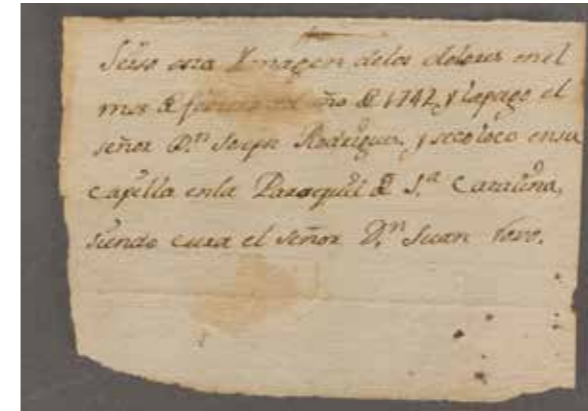 Seiso esta Ymagen delos dolores en el
mes de febrero del año de 1742, y lapago el
señor D.n Joseph Rodriguez, y secoloco ensu
capilla enla Parroquial de S.ta Catalina,
siendo cura el señor D.n Juan Toro.